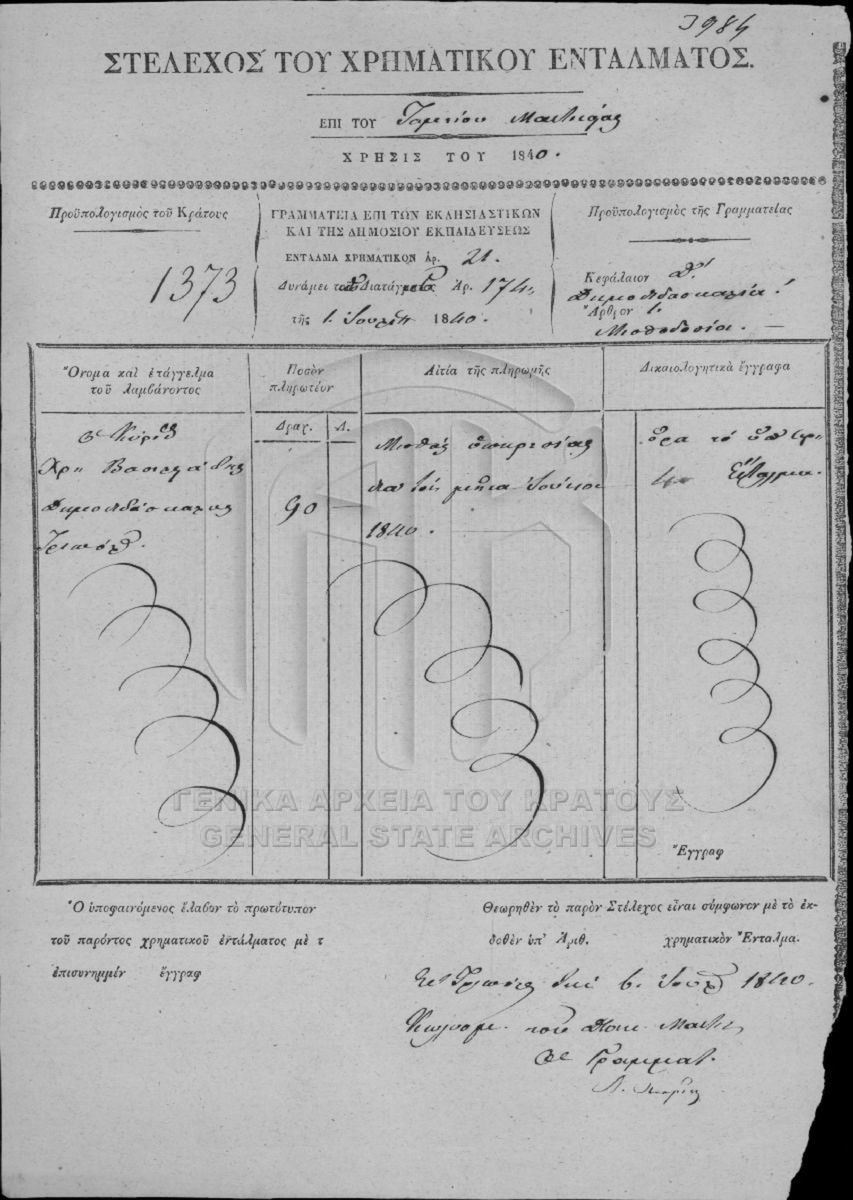 3984
ΣΤΕΛΕΧΟΣ ΤΟΥ ΧΡΗΜΑΤΙΚΟΥ ΕΝΤΑΛΜΑΤΟΣ.
ΕΠΙ ΤΟΥ Ταμείου
ΧΡΗΣΙΣ ΤΟΥ 1840.
Προϋπολογισμὸς τοῦ Κράτους
1373
ΓΡΑΜΜΑΤΕΙΑ ΕΠΙ ΤΩΝ ΕΚΛΗΣΙΑΣΤΙΚΩΝ
ΚΑΙ ΤΗΣ ΔΗΜΟΣΙΟΥ ΕΚΠΑΙΔΕΥΣΕΩΣ
ΕΝΤΑΛΜΑ ΧΡΗΜΑΤΙΚΟΝ Ἀρ. 21.
Δυνάμει τοῦ Διατάγμα Ἀρ. 174,
τῆς 1. 1840.
Προϋπολογισμὸς τῆς Γραμματείας
Κεφάλαιον Δ'.
Δημοδιδασκαλία
Ἄρθρον 1.
Μισθοδοσία.
Ὄνομα καὶ ἐπάγγελμα
τοῦ λαμβάνοντος
Ποσὸν
πληρωτέον
Αἰτία τῆς πληρωμῆς
Δικαιολογητικὰ ἔγγραφα
Δραχ. Λ.
Δημοδιδάσκαλος
90
Μισθὸς
διὰ τὸν μῆνα Ἰούνιον
1840.
ὅρα τὸ
Ἔνταλμα.
Ἔγγραφ
Ὁ ὑποφαινόμενος ἔλαβον τὸ πρωτότυπον
τοῦ παρόντος χρηματικοῦ ἐντάλματος μὲ τ
ἐπισυνημμέν ἔγγραφ
Θεωρηθὲν τὸ παρὸν Στέλεχος εἶναι σύμφωνον μὲ τὸ ἐκ-
δοθὲν ὑπ' Ἀριθ. χρηματικὸν Ἔνταλμα.
6. 1840.
τοῦ Διοικ.
Γραμματ.
ΓΕΝΙΚΑ ΑΡΧΕΙΑ ΤΟΥ ΚΡΑΤΟΥΣ
GENERAL STATE ARCHIVES